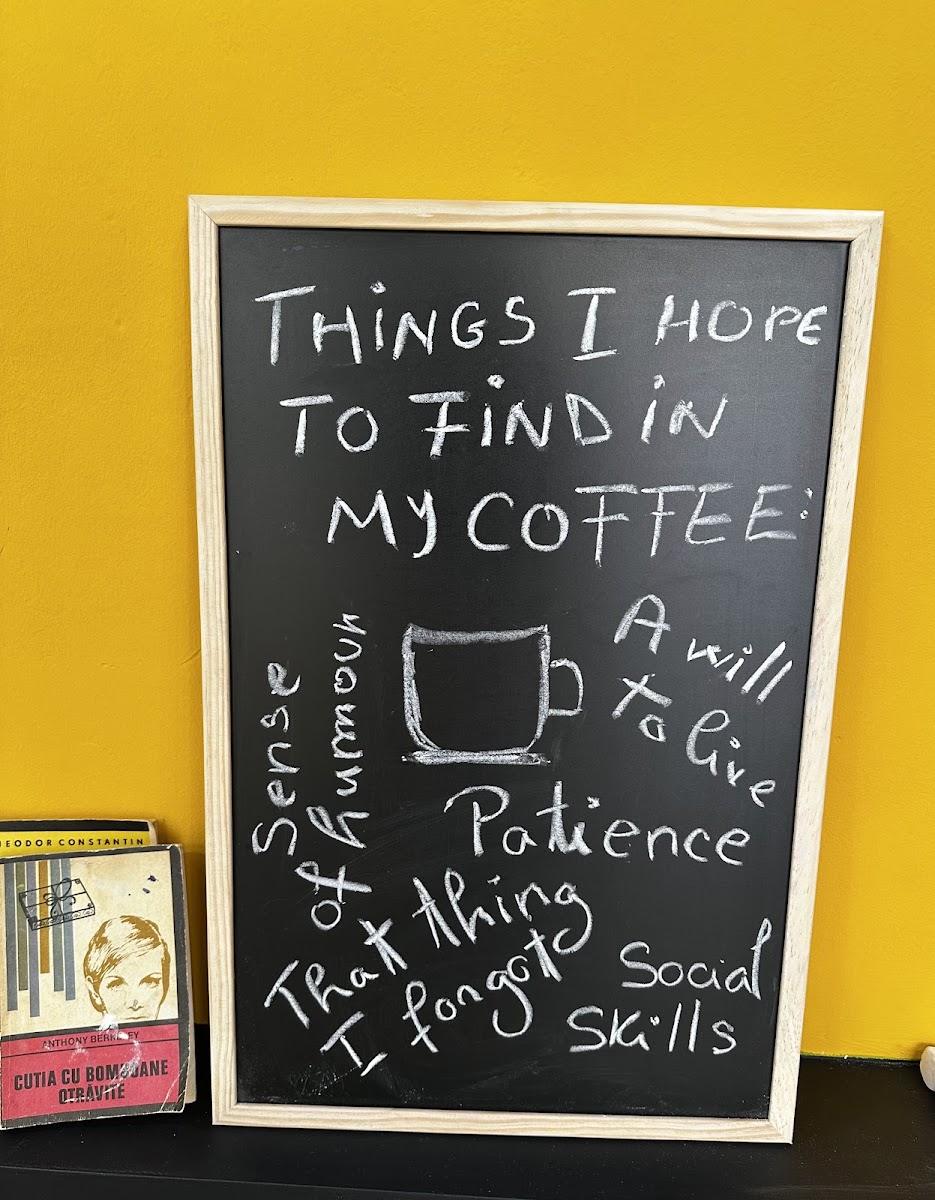 THiNGS I HOPE
TO FiND iN
MY COFFEE:
Sense
of hummour
A will
to live
Patience
That thing
I forgot
Social
Skills
EODOR CONSTANTIN
ANTHONY BERKELEY
CUTIA CU BOMBOANE
OTRĂVITE